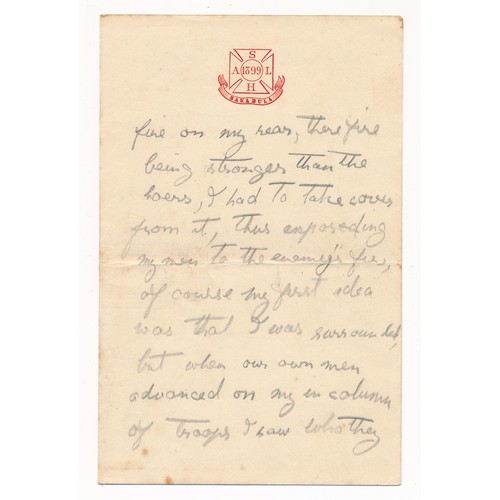 S
A 1899 L
H
BASABULA
fire on my rear, their fire
being stronger than the
boers, I had to take cover
from it, thus exposing
my men to the enemy's fire,
of course my first idea
was that I was surrounded,
but when our own men
advanced on me in column
of troops I saw who they